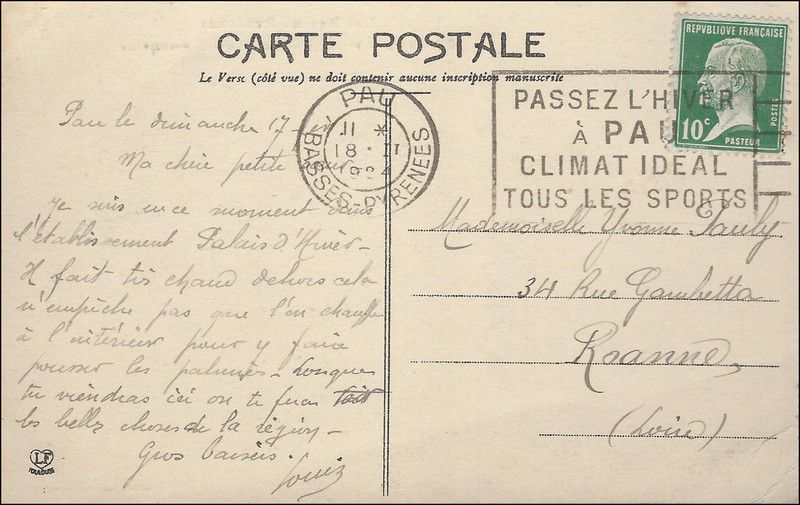 CARTE POSTALE
Le Verso (côté vue) ne doit contenir aucune inscription manuscrite
REPUBLIQUE FRANÇAISE
POSTES
10c
PASTEUR
PAU
11 *
18 · II
1924
BASSES-PYRENEES
PASSEZ L'HIVER
À PAU
CLIMAT IDEAL
TOUS LES SPORTS
Pau le dimanche 17
Ma chère petite
Je suis en ce moment dans
l'établissement Palais d'Hiver -
Il fait très chaud dehors cela
n'empêche pas que l'on chauffe
à l'intérieur pour y faire
pousser les palmiers - Lorsque
tu viendras ici on te fera
les belles choses de la région -
Gros baisers.
Louis
Mademoiselle Yvonne Pauly
34 Rue Gambetta
Roanne,
(Loire)
LF
TOULOUSE